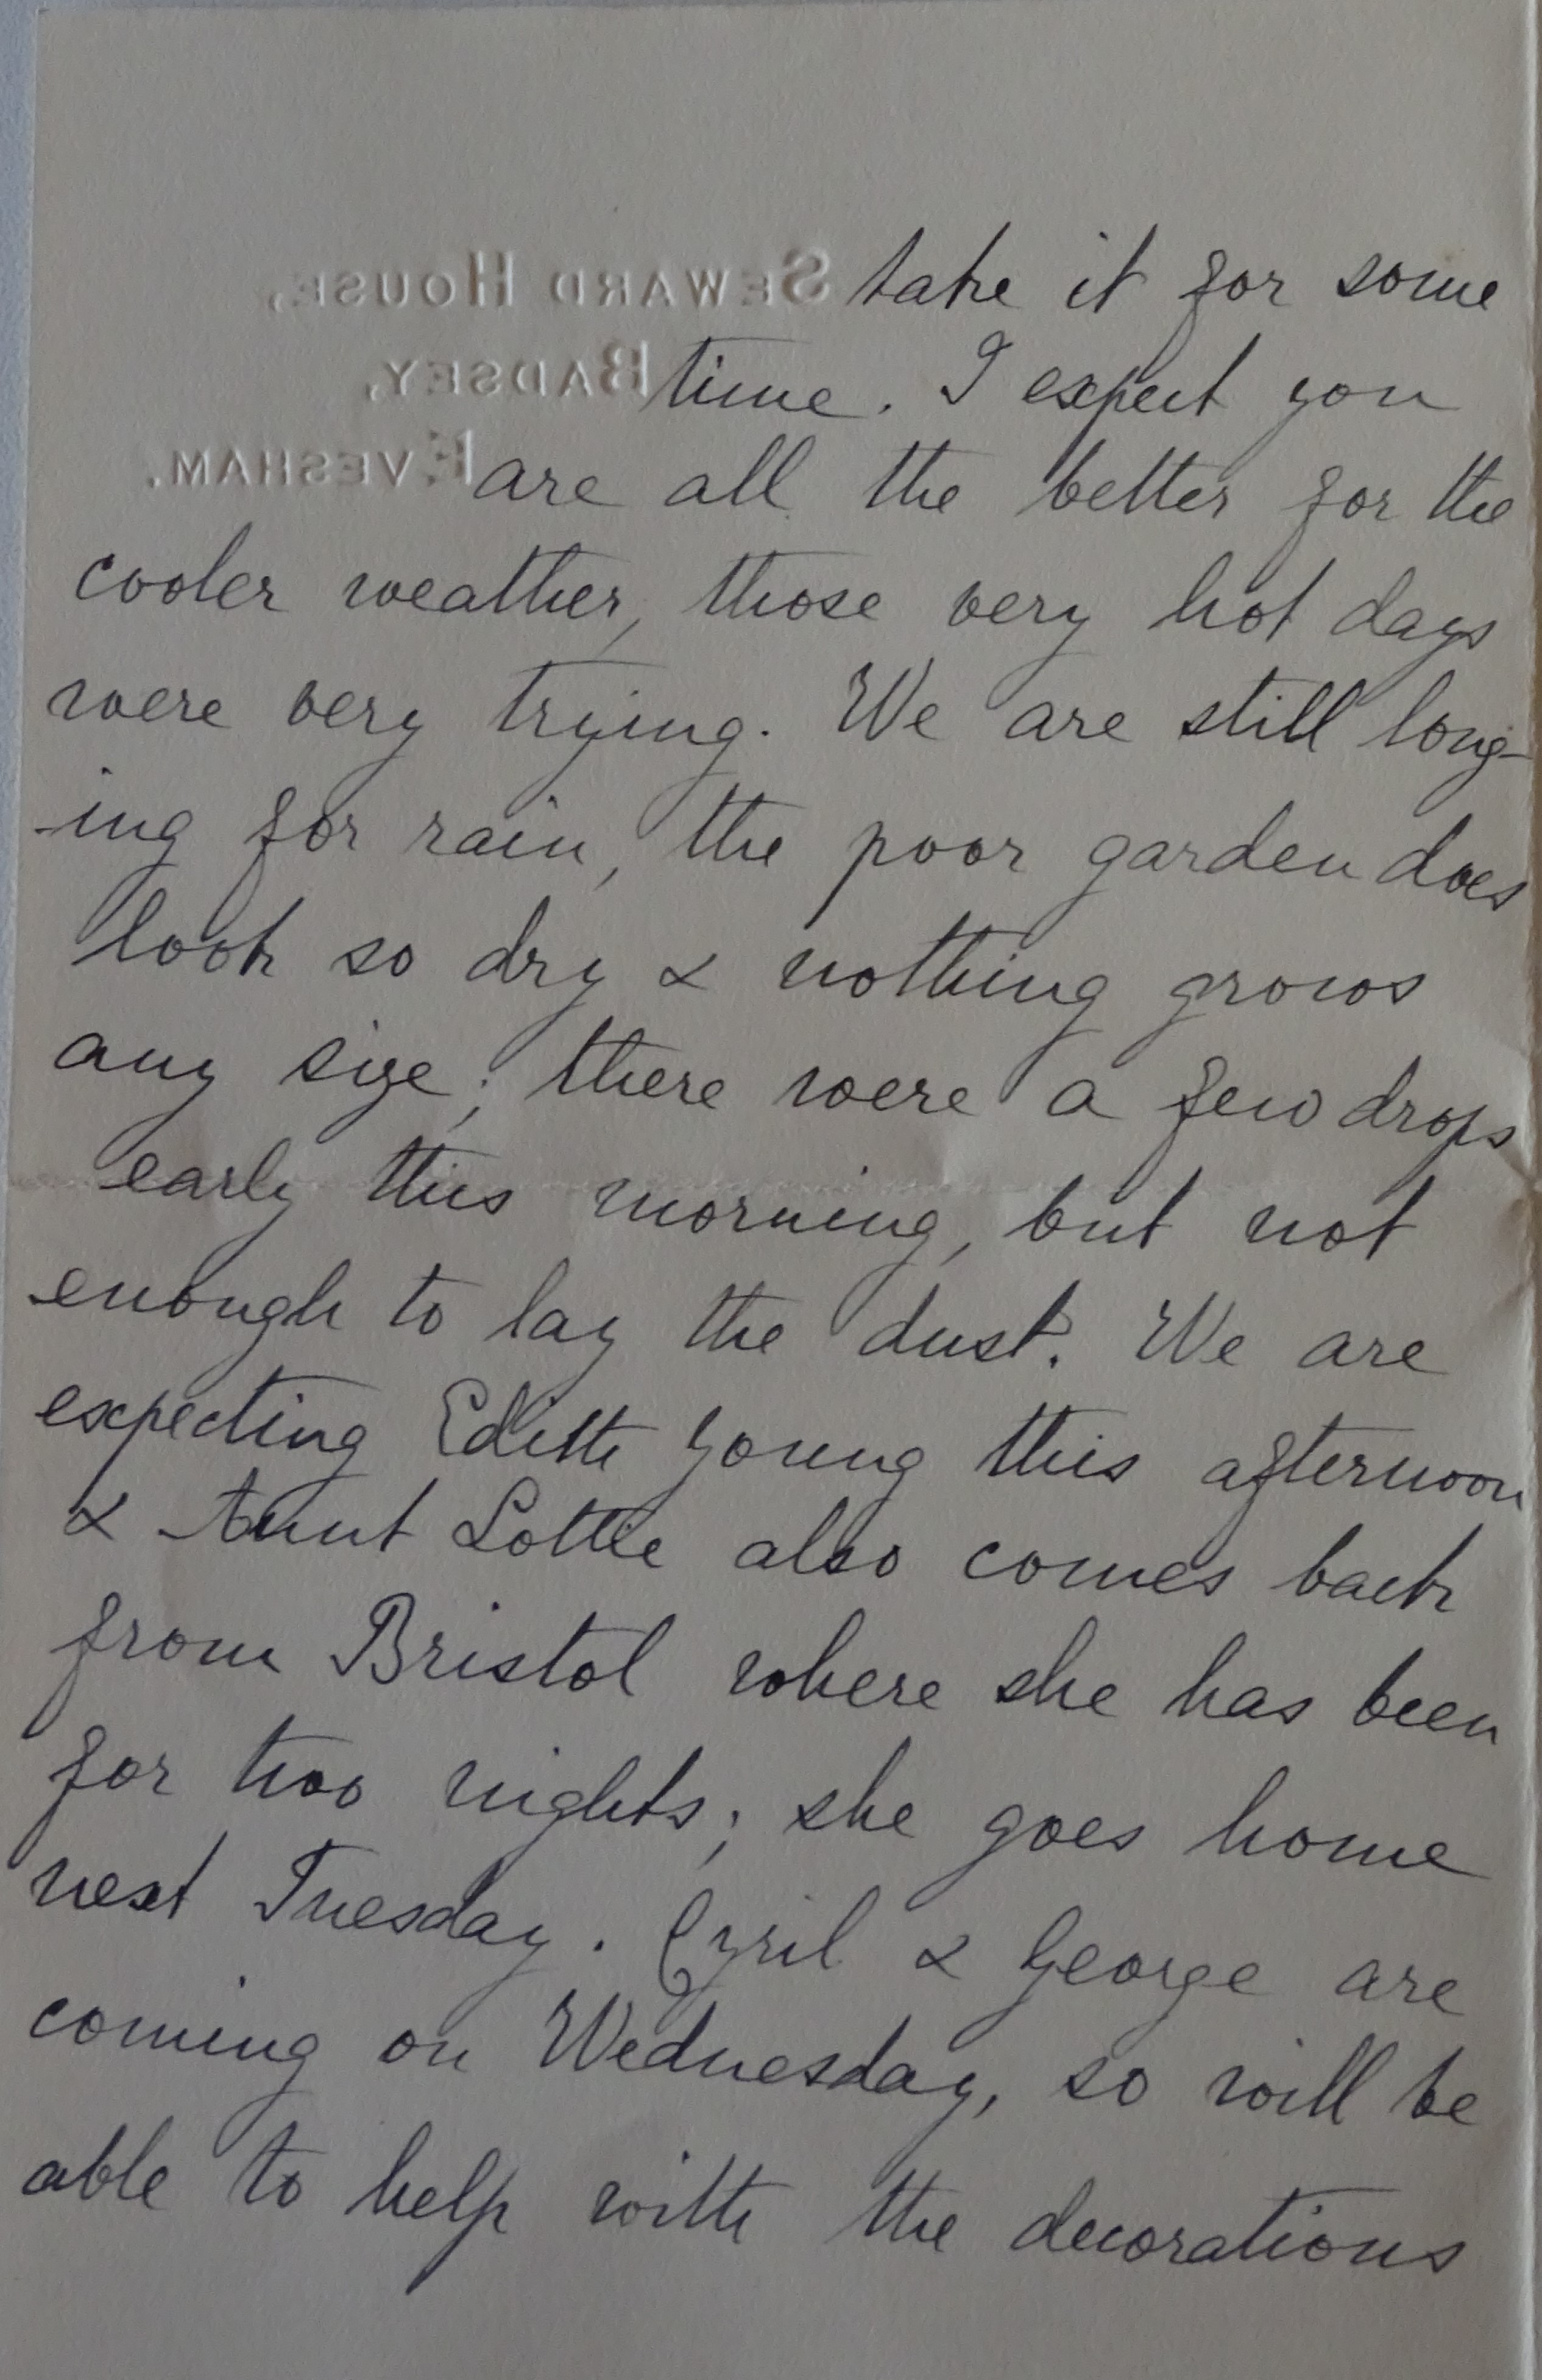 SEWARD HOUSE,
BADSEY,
EVESHAM.
take it for some
time. I expect you
are all the better for the
cooler weather, those very hot days
were very trying. We are still long-
-ing for rain, the poor garden does
look so dry & nothing grows
any size; there were a few drops
early this morning, but not
enough to lay the dust. We are
expecting Edith Young this afternoon
& Aunt Lottie also comes back
from Bristol where she has been
for two nights; she goes home
next Tuesday. Cyril & George are
coming on Wednesday, so will be
able to help with the decorations